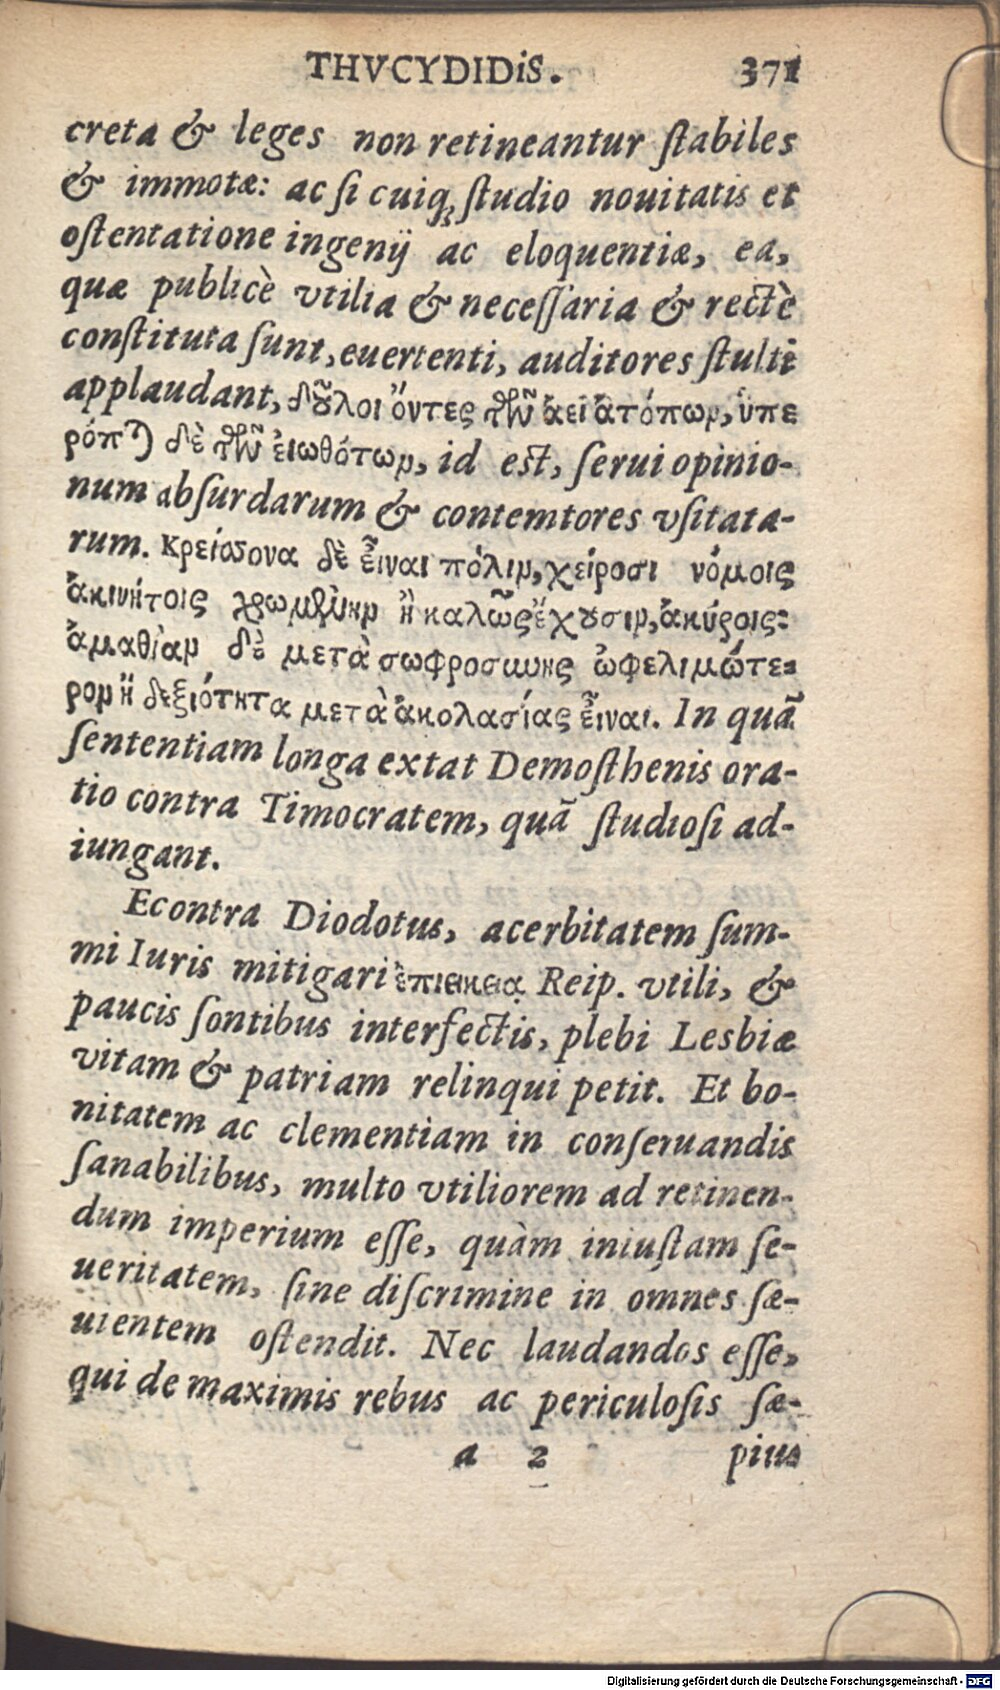 THVCYDIDiS. 371
creta & leges non retineantur ſtabiles
& immotæ: ac ſi cuiq; ſtudio nouitatis et
oſtentatione ingenij ac eloquentiæ, ea,
quæ publicè vtilia & neceſſaria & rectè
conſtituta ſunt, euertenti, auditores ſtulti
applaudant, δοῦλοι ὄντες τῶν ἀεὶ ἀτόπων, ὑπε
ρόπται δὲ τῶν εἰωθότων, id est, ſerui opinio-
num abſurdarum & contemtores vſitata-
rum. Κρείσσονα δὲ εἶναι πόλιν, χείροσι νόμοις
ἀκινήτοις χρωμένην ἢ καλῶς ἔχουσιν, ἀκύροις:
ἀμαθίαν δὲ μετὰ σωφροσύνης ὠφελιμώτε-
ρον ἢ δεξιότητα μετὰ ἀκολασίας εἶναι. In quã
ſententiam longa extat Demoſthenis ora-
tio contra Timocratem, quã ſtudioſi ad-
iungant.
Econtra Diodotus, acerbitatem ſum-
mi Iuris mitigari ἐπιεικείᾳ Reip. vtili, &
paucis ſontibus interfectis, plebi Lesbiæ
vitam & patriam relinqui petit. Et bo-
nitatem ac clementiam in conſeruandis
ſanabilibus, multo vtiliorem ad retinen-
dum imperium eſſe, quàm iniuſtam ſe-
ueritatem, ſine diſcrimine in omnes ſæ-
uientem oſtendit. Nec laudandos eſſe,
qui de maximis rebus ac periculoſis ſæ-
a 2 pius
Digitalisierung gefördert durch die Deutsche Forschungsgemeinschaft - DFG